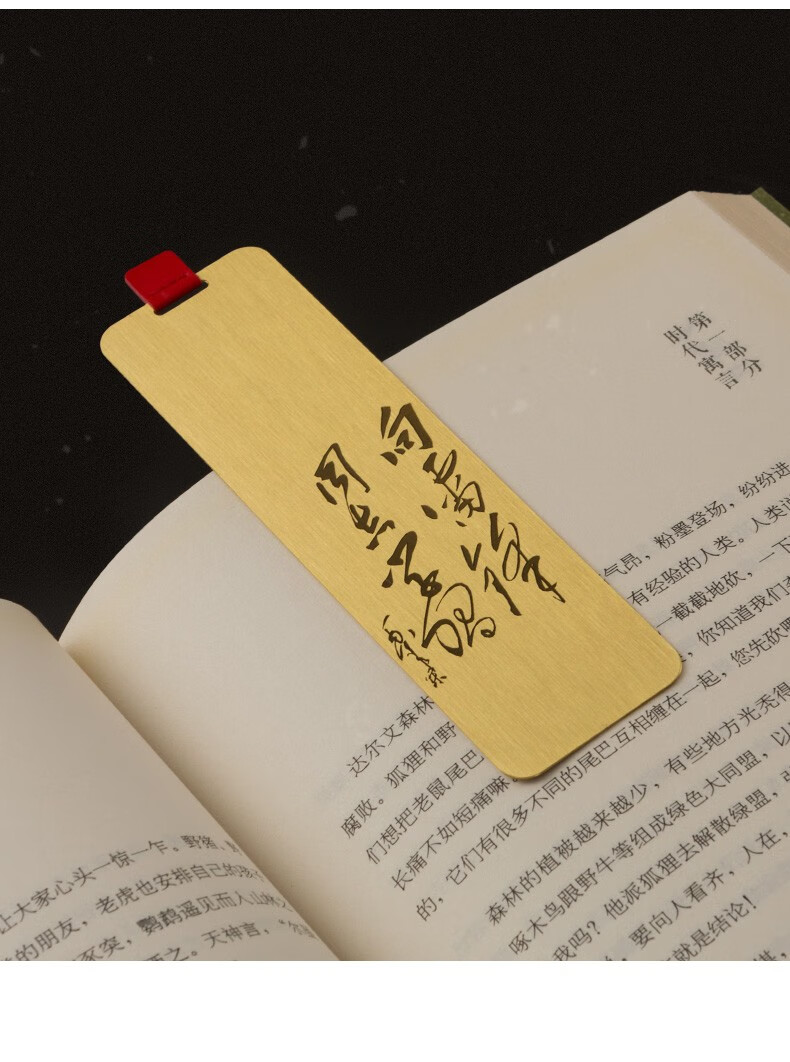 向雷锋
同志学习
毛泽东
第一部分
时代寓言
气昂，粉墨登场，纷纷进
有经验的人类。人类
一截截地砍，一下
达尔文森林
腐败。狐狸和野
，你知道我们
们想把老鼠尾巴
长痛不如短痛嘛
的，它们有很多不同的尾巴互相缠在一起，您先砍哪
森林的植被越来越少，有些地方光秃得
啄木鸟跟野牛等组成绿色大同盟，以
我吗？他派狐狸去解散绿盟，
，要向人看齐，人在，
就是结论！
让大家心头一惊一乍。野猪，
的朋友，老虎也安排自己的孩子
豕突，鹦鹉遥见而入山
之。天神言，“